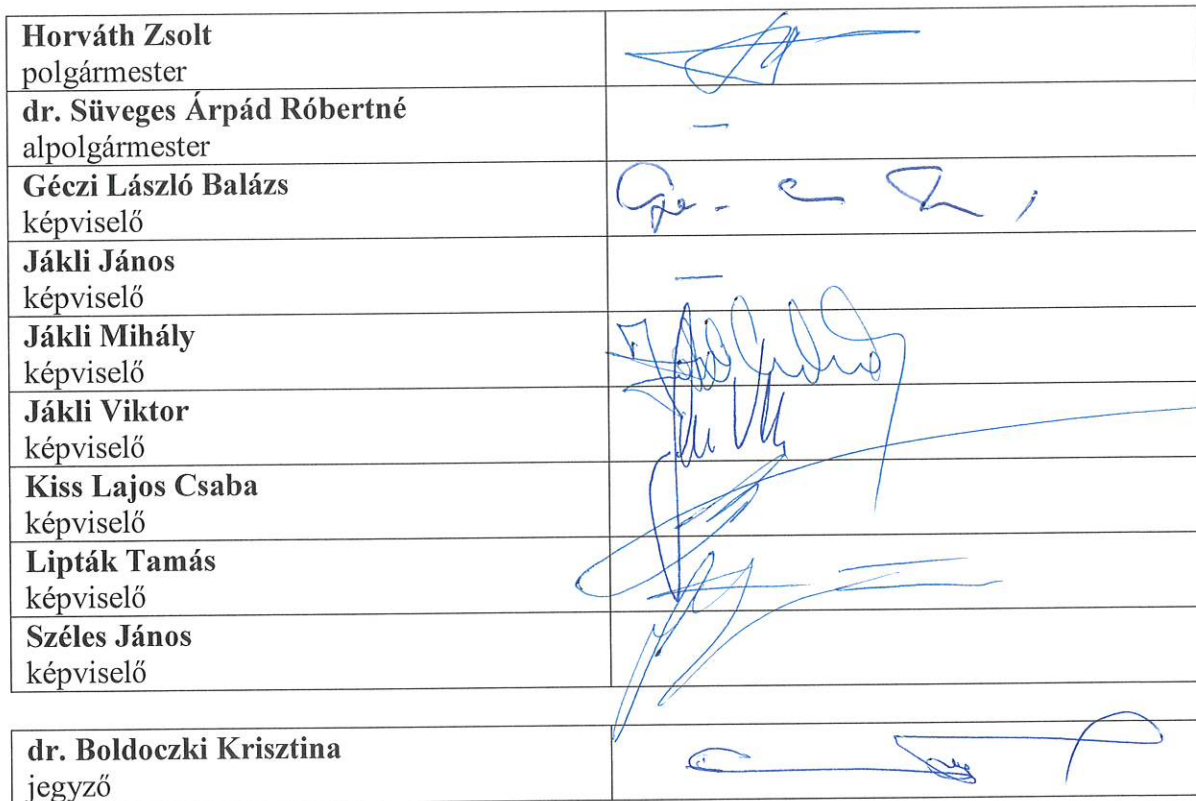 Horváth Zsolt
polgármester
dr. Süveges Árpád Róbertné
alpolgármester
–
Géczi László Balázs
képviselő
Jákli János
képviselő
–
Jákli Mihály
képviselő
Jákli Viktor
képviselő
Kiss Lajos Csaba
képviselő
Lipták Tamás
képviselő
Széles János
képviselő
dr. Boldoczki Krisztina
jegyző